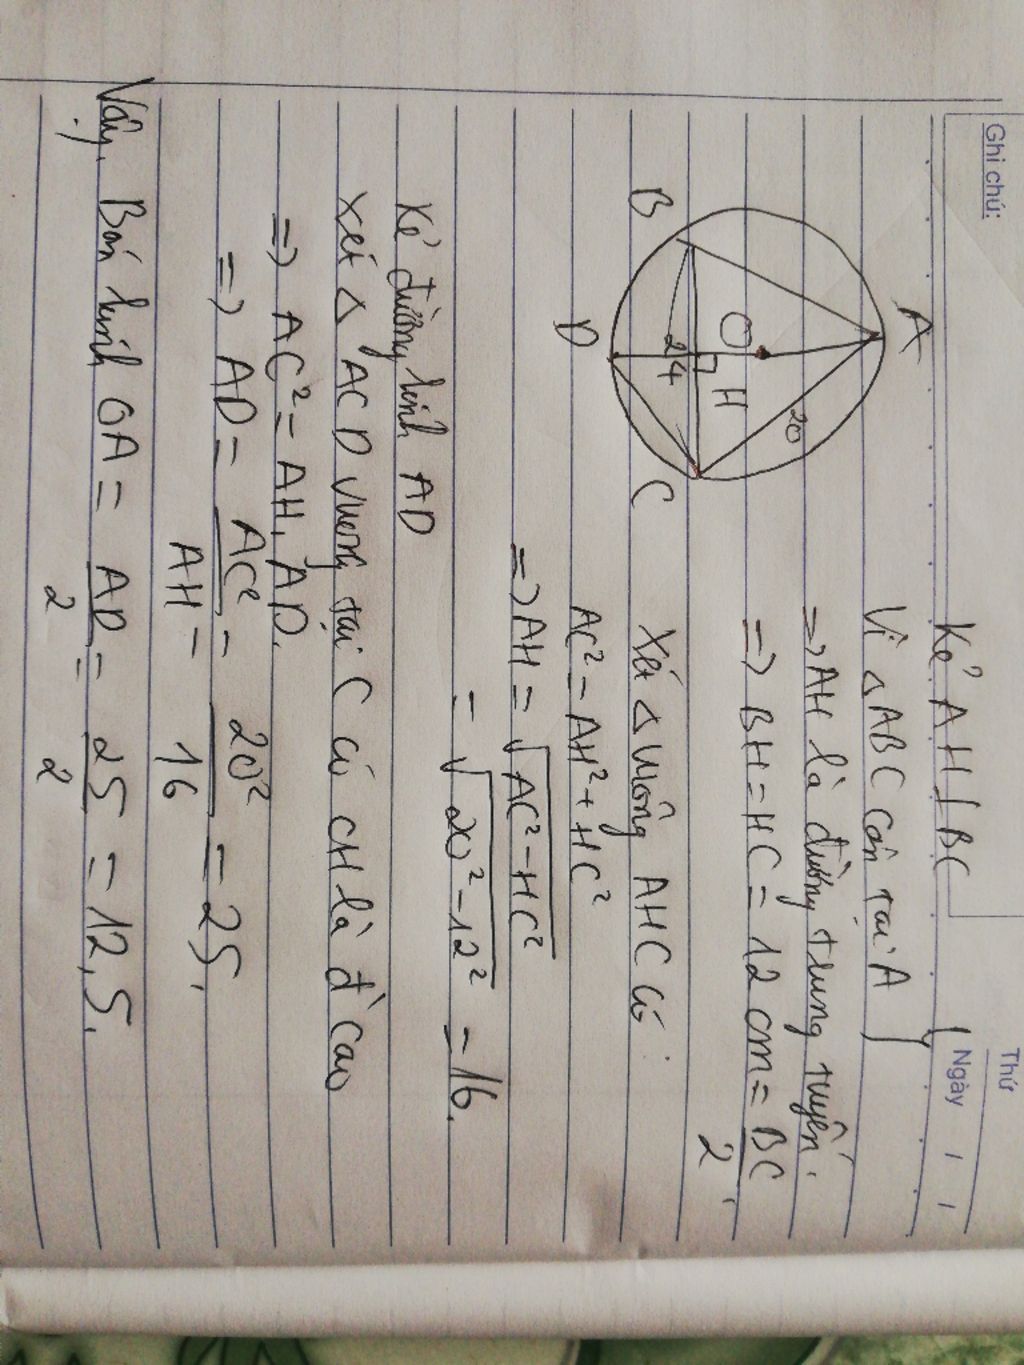 Ghi chú:
Thứ
Ngày / /
Kẻ AH ⊥ BC
Vì △ABC cân tại A }
=> AH là đường trung tuyến.
=> BH = HC = 12 cm = BC/2.
A
20
O
H
24
B
C
D
Xét △ vuông AHC có:
AC² = AH² + HC²
=> AH = √(AC² - HC²)
= √(20² - 12²) = 16.
Kẻ đường kính AD
Xét △ ACD vuông tại C có CH là đ' cao
=> AC² = AH. AD.
=> AD = AC²/AH = 20²/16 = 25.
Vậy. Bán kính OA = AD/2 = 25/2 = 12,5.